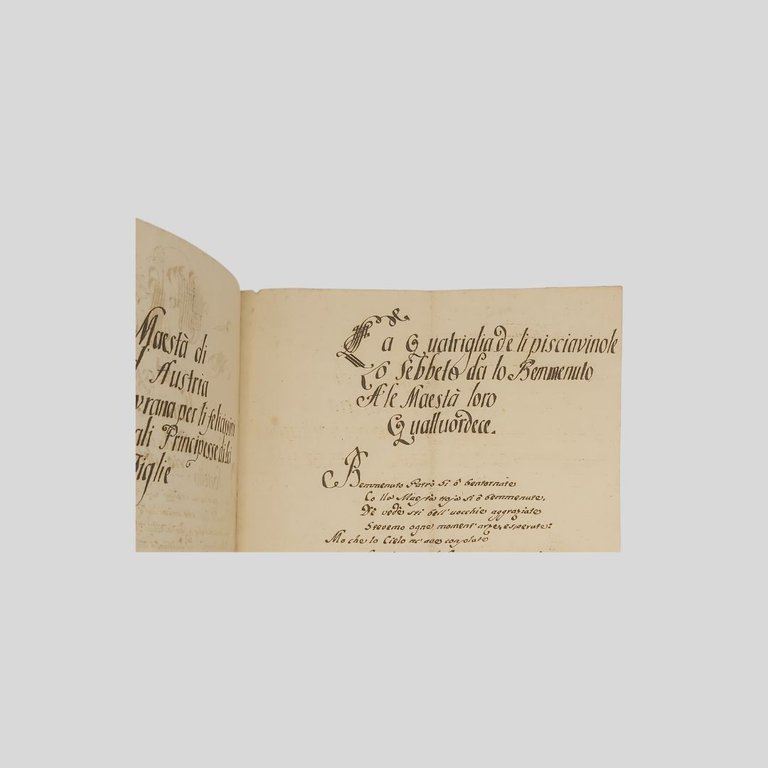 Maestà di
Austria
vrana per li felicissi
ali Principesse di lo
Figlie
La Quatriglia de li pisciavinole
Lo Sebbeto da lo Bemmenuto
A le Maestà loro
Quattuordece.
Bemmenuto Patrò si è bentornate
Co lla Maestà toja si è bemmenute,
De vedè sti bell'uocchie aggraziate
Stevemo ogne moment' arze, e sperute:
Mo che lo Cielo nc' ave conzolate